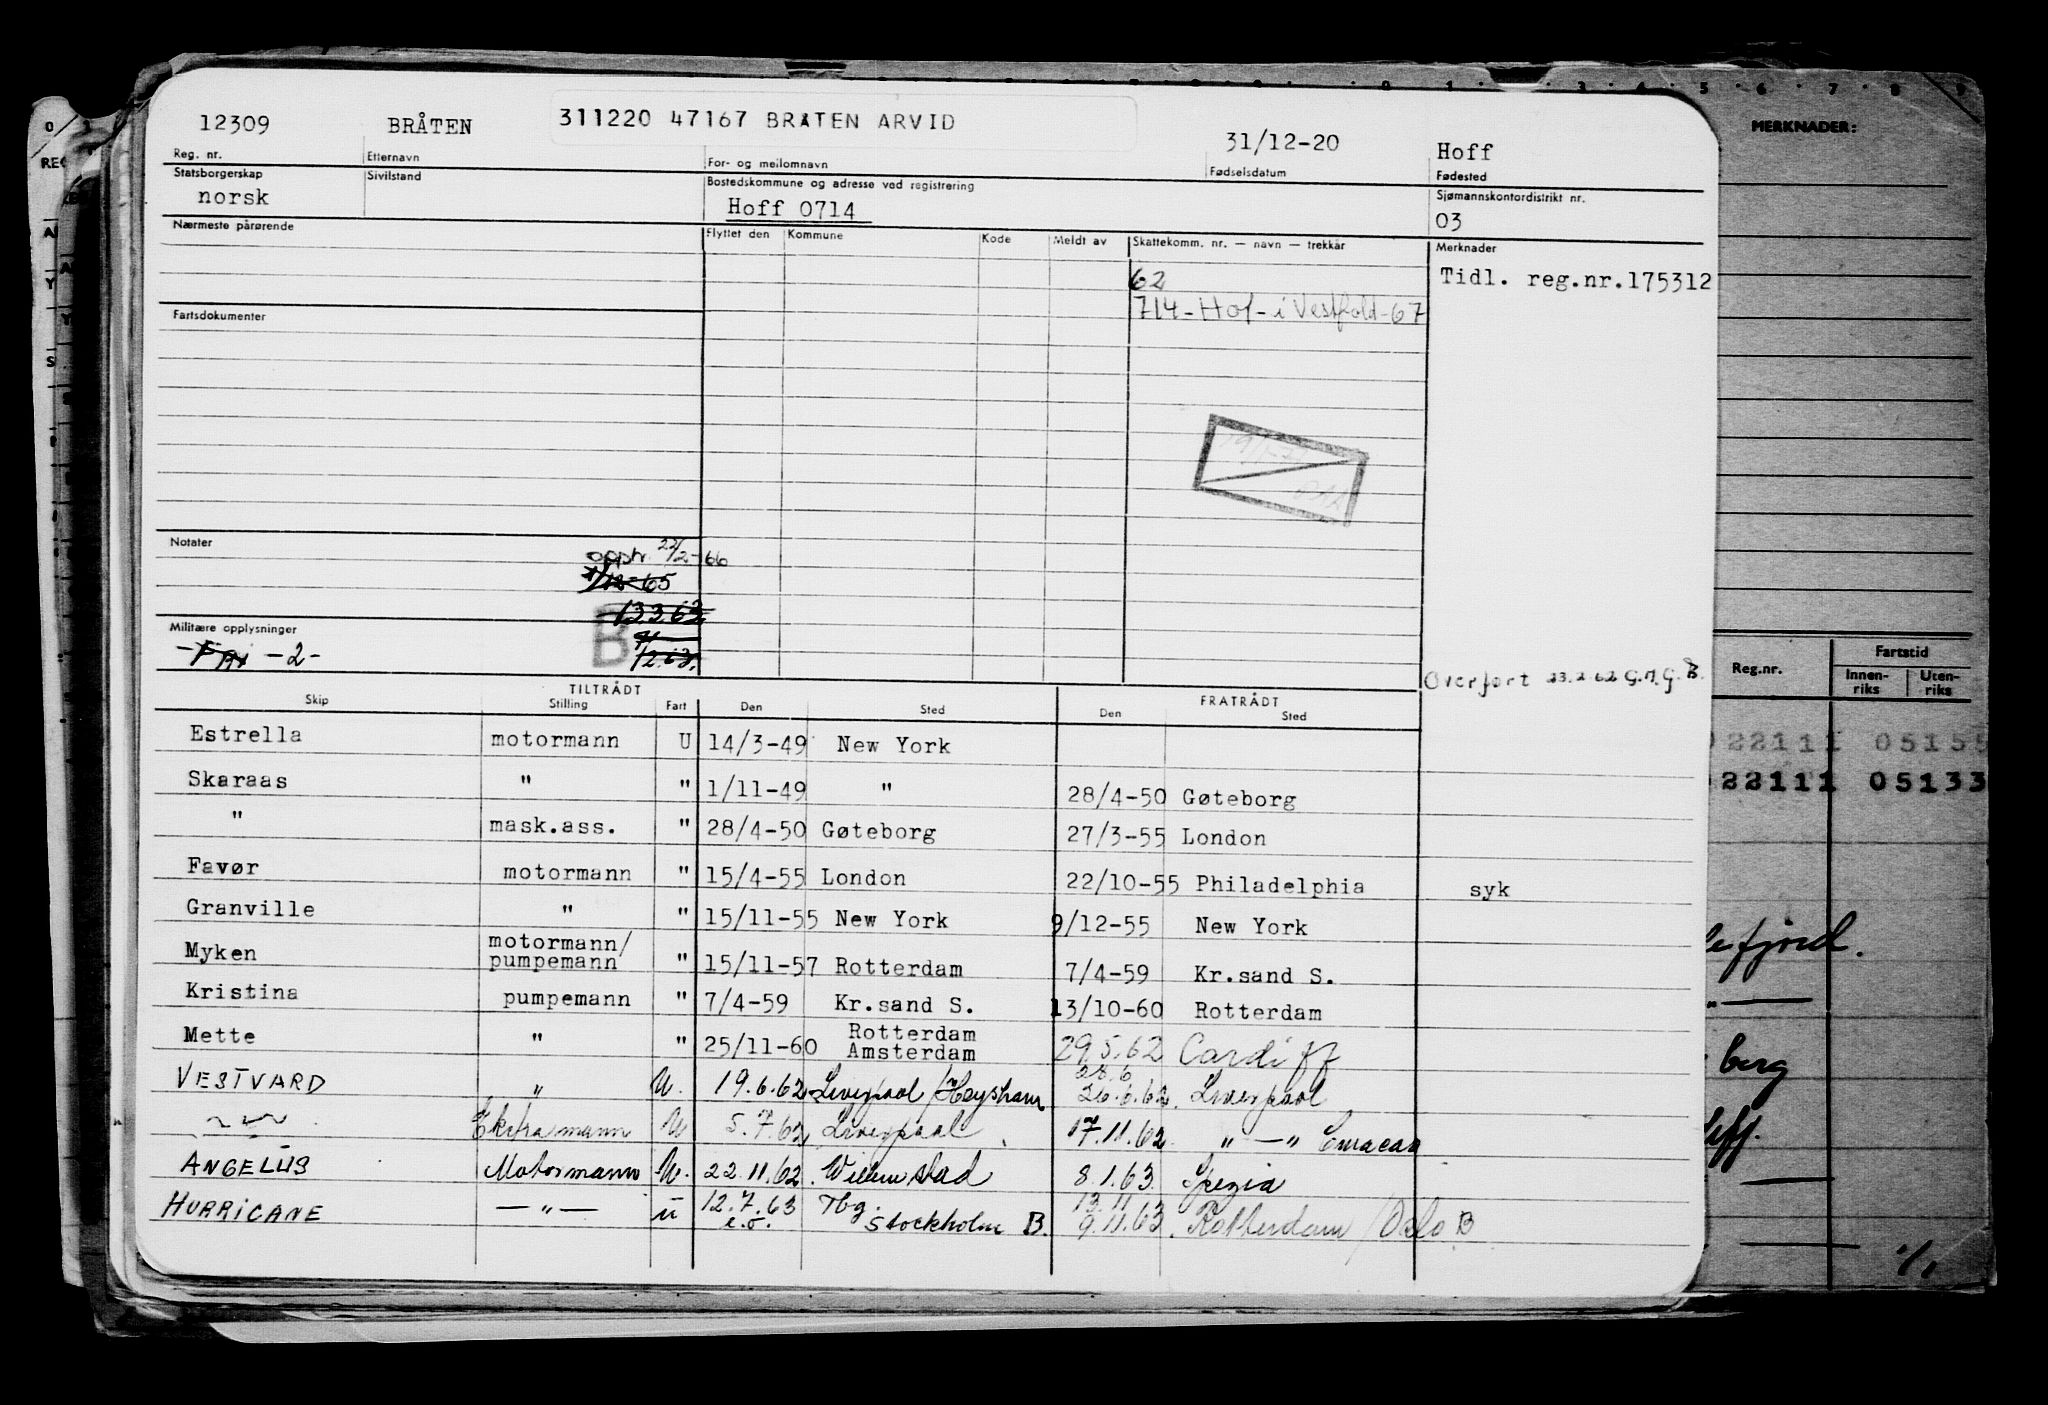 12309 BRÅTEN 311220 47167 BRATEN ARVID 31/12-20 Hoff
Reg. nr. Etternavn For- og mellomnavn Fødselsdatum Fødested
Statsborgerskap Sivilstand Bostedskommune og adresse ved registrering Sjømannskontordistrikt nr.
norsk Hoff 0714 03
Nærmeste pårørende Flyttet den Kommune Kode Meldt av Skattekomm. nr. — navn — trekkår Merknader
62 Tidl. reg.nr.175312
714-Hof-i Vestfold-67
Fartsdokumenter
Notater
oppt. 22/2-66
1/12-65
13.3.63
Militære opplysninger
B
-2-
Overført 23.2 62 G.M.G. B.
TILTRÅDT FRATRÅDT
Skip Stilling Fart Den Sted Den Sted
Estrella motormann U 14/3-49 New York
Skaraas " " 1/11-49 " 28/4-50 Gøteborg
" mask.ass. " 28/4-50 Gøteborg 27/3-55 London
Favør motormann " 15/4-55 London 22/10-55 Philadelphia syk
Granville " " 15/11-55 New York 9/12-55 New York
Myken motormann/ pumpemann " 15/11-57 Rotterdam 7/4-59 Kr.sand S.
Kristina pumpemann " 7/4-59 Kr.sand S. 13/10-60 Rotterdam
Mette " " 25/11-60 Rotterdam Amsterdam 29.5.62 Cardiff
VESTVARD " U. 19.6.62 Liverpool/Heysham 28.6 26.6.62. Liverpool
Ekstramann U 5.7.62 Liverpool 17.11.62 " — " Curacao
ANGELUS Motormann U. 22.11.62. Willemstad 8.1.63. Spezia
HURRICANE — " — U 12.7.63 Tbg. 13.11
e.o. Stockholm B. 9.11.63. Rotterdam/Oslo B
MERKNADER:
Reg.nr. Fartstid
Innen-riks Uten-riks
22111 05155
22111 05133
fjord.
berg